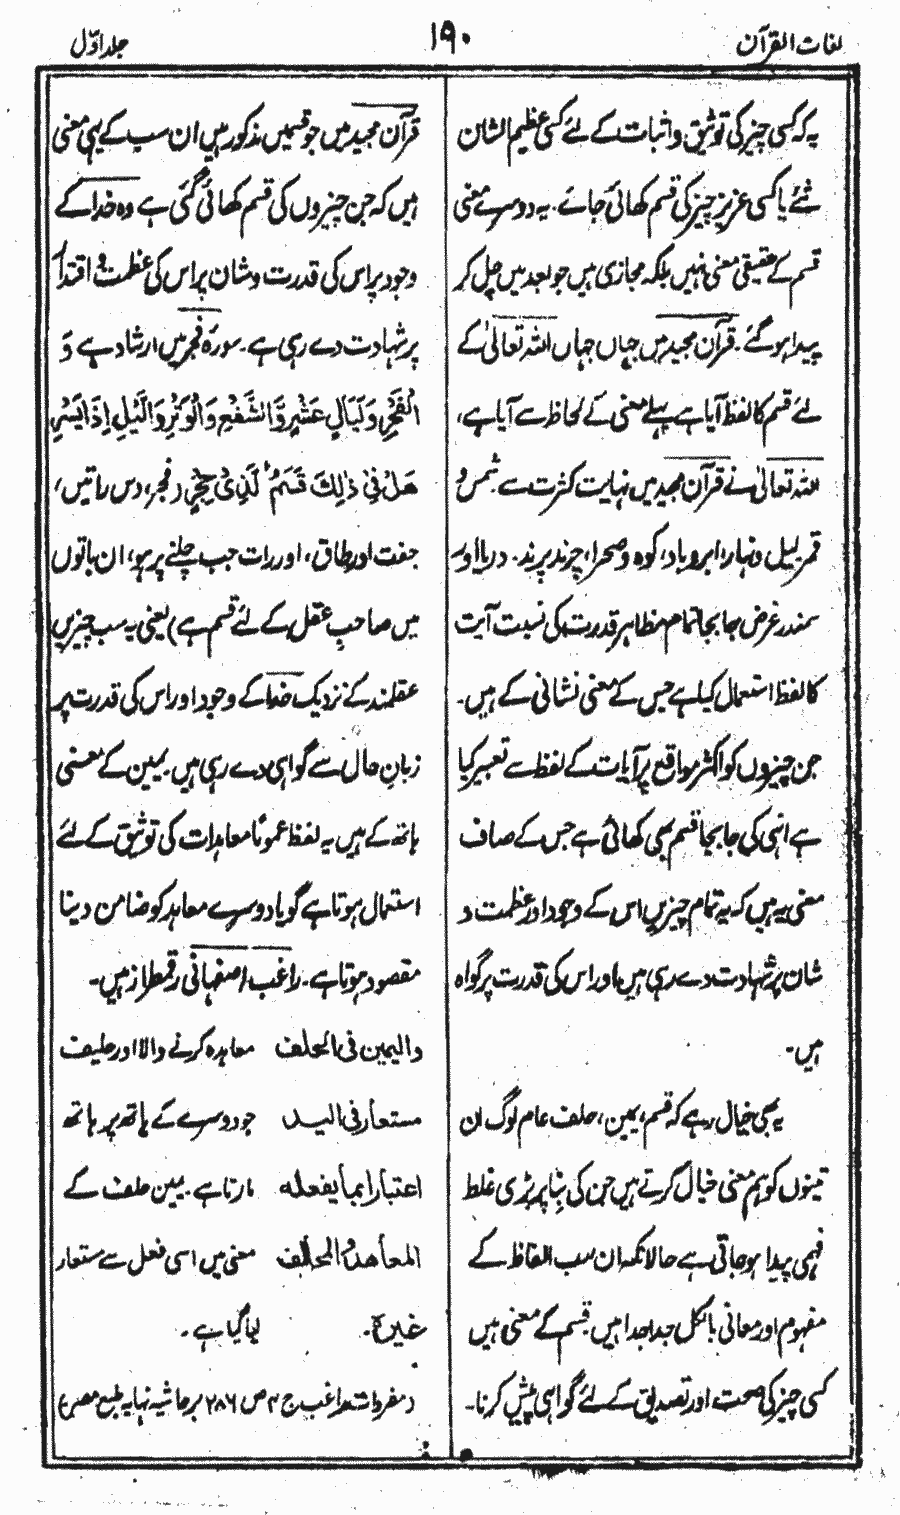 لغات القرآن
۱۹۰
جلد اوّل
یہ کہ کسی چیز کی توثیق و اثبات کے لئے کسی عظیم الشان
شئے یا کسی عزیز چیز کی قسم کھائی جائے۔ یہ دوسرے معنی
قسم کے حقیقی معنی نہیں بلکہ مجازی ہیں جو بعد میں چل کر
پیدا ہو گئے۔ قرآن مجید میں جہاں جہاں اللہ تعالیٰ کے
لئے قسم کا لفظ آیا ہے پہلے معنی کے لحاظ سے آیا ہے،
اللہ تعالیٰ نے قرآن مجید میں نہایت کثرت سے شمس و
قمر، لیل و نہار، ابر و باد، کوہ و صحرا، چرند پرند، دریا اور
سمندر غرض جابجا تمام مظاہر قدرت کی نسبت آیت
کا لفظ استعمال کیا ہے جس کے معنی نشانی کے ہیں۔
جن چیزوں کو اکثر مواقع پر آیات کے لفظ سے تعبیر کیا
ہے انہی کی جابجا قسم بھی کھائی ہے جس کے صاف
معنی یہ ہیں کہ یہ تمام چیزیں اس کے وجود اور عظمت و
شان پر شہادت دے رہی ہیں اور اس کی قدرت پر گواہ
ہیں۔
یہ بھی خیال رہے کہ قسم، یمین، حلف عام لوگ ان
تینوں کو ہم معنی خیال کرتے ہیں جن کی بنا پر بڑی غلط
فہمی پیدا ہو جاتی ہے حالانکہ ان سب الفاظ کے
مفہوم اور معانی بالکل جدا جدا ہیں۔ قسم کے معنی ہیں
کسی چیز کی صحت اور تصدیق کے لئے گواہی پیش کرنا۔
قرآن مجید میں جو قسمیں مذکور ہیں ان سب کے یہی معنی
ہیں کہ جن چیزوں کی قسم کھائی گئی ہے وہ خدا کے
وجود پر اس کی قدرت و شان پر اس کی عظمت و اقتدار
پر شہادت دے رہی ہے۔ سورۂ فجر میں ارشاد ہے وَ
الْفَجْرِ وَلَيَالٍ عَشْرٍ وَّالشَّفْعِ وَالْوَتْرِ وَالَّيْلِ اِذَا يَسْرِ
هَلْ فِیْ ذٰلِكَ قَسَمٌ لِّذِیْ حِجْرٍ (فجر، دس راتیں،
جفت اور طاق، اور رات جب چلنے پر ہو، ان باتوں
میں صاحبِ عقل کے لئے قسم ہے) یعنی یہ سب چیزیں
عقلمند کے نزدیک خدا کے وجود اور اس کی قدرت پر
زبانِ حال سے گواہی دے رہی ہیں۔ یمین کے معنی
ہاتھ کے ہیں یہ لفظ عموماً معاہدات کی توثیق کے لئے
استعمال ہوتا ہے گویا دوسرے معاہد کو ضامن دینا
مقصود ہوتا ہے۔ راغب اصفہانی رقمطراز ہیں۔
والیمین فی الحلف معاہدہ کرنے والا اور حلیف
مستعار فی الید جو دوسرے کے ہاتھ پر ہاتھ
اعتبارا بما یفعله مارتا ہے۔ یمین حلف کے
المعاهد و المحالف معنی میں اسی فعل سے مستعار
غیرہ۔ لیا گیا ہے۔
(مفردات راغب ج ۴ ص ۲۸۶ برحاشیہ نہایہ طبع مصر)